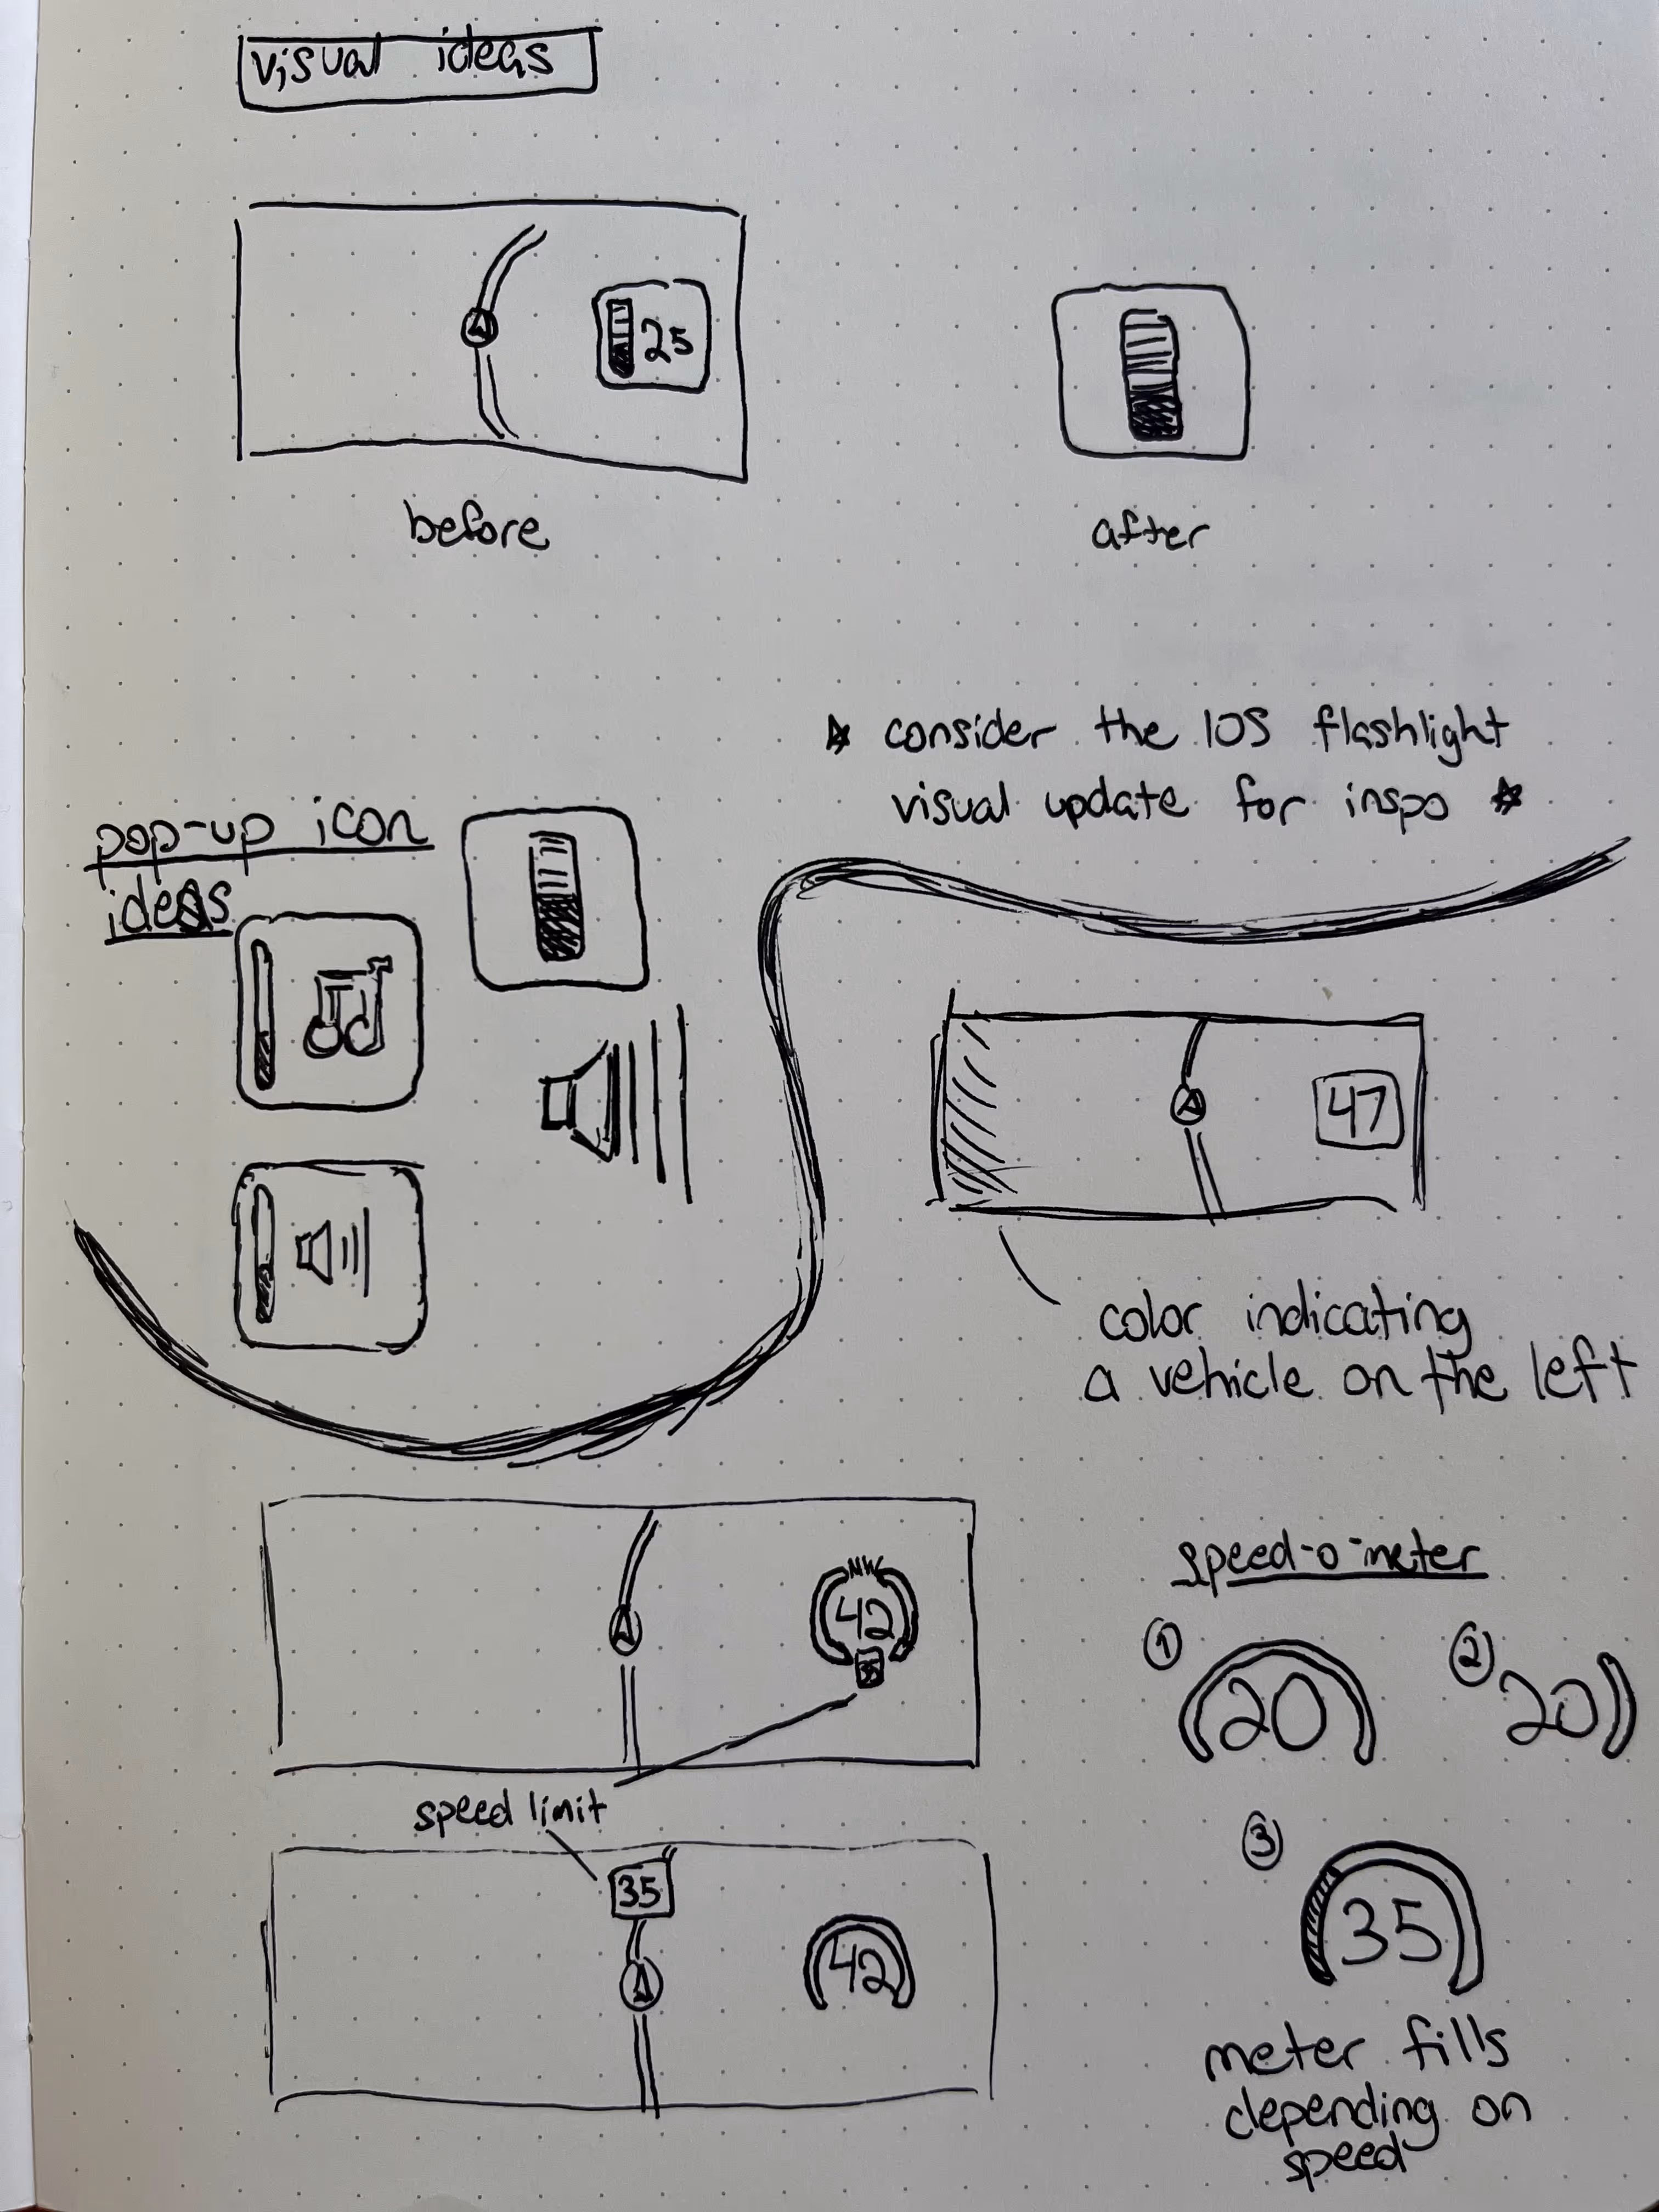 visual ideas
25
before
after
☆ consider the IOS flashlight
visual update for inspo ☆
pop-up icon
ideas
47
color indicating
a vehicle on the left
NW
42
35
speed limit
35
42
speed-o-meter
① 20
② 20
③ 35
meter fills
depending on
speed